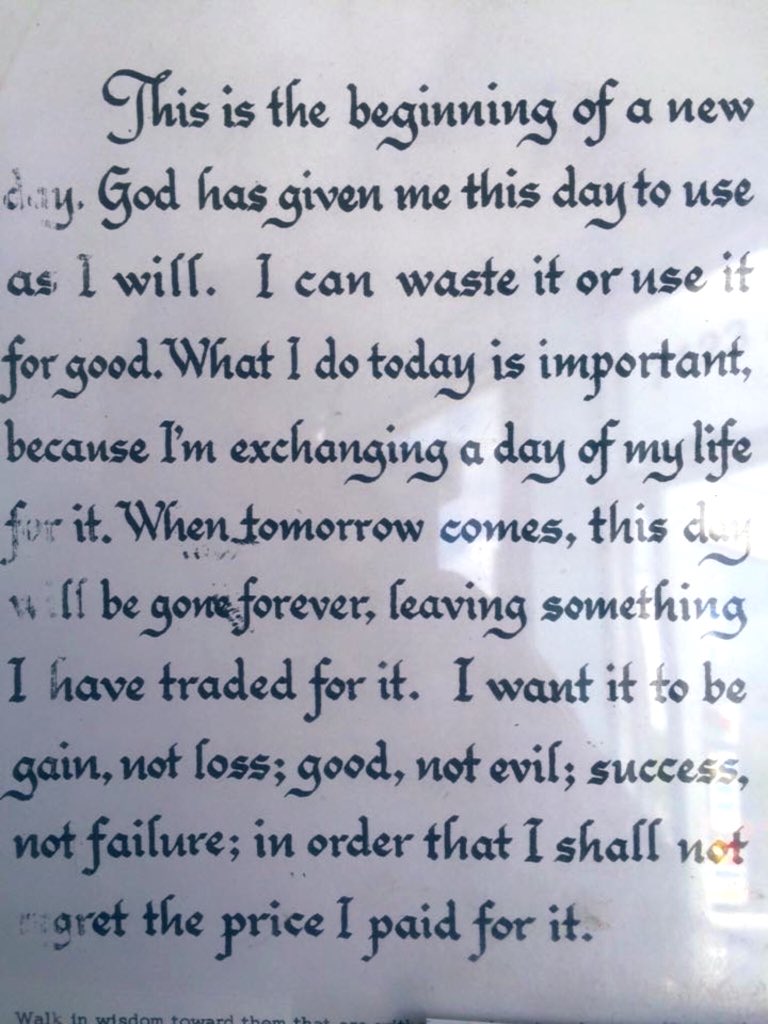 This is the beginning of a new
day. God has given me this day to use
as I will. I can waste it or use it
for good. What I do today is important,
because I'm exchanging a day of my life
for it. When tomorrow comes, this day
will be gone forever, leaving something
I have traded for it. I want it to be
gain, not loss; good, not evil; success,
not failure; in order that I shall not
regret the price I paid for it.
Walk in wisdom toward them that are